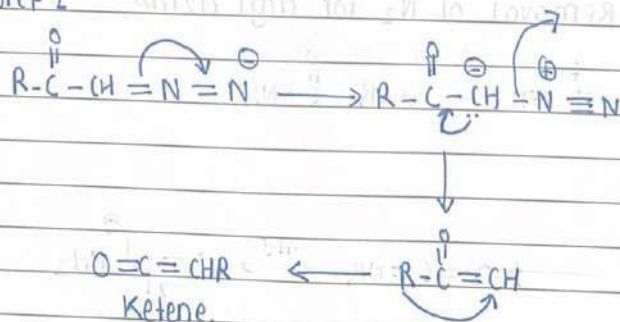 O O
R-C-CH=N=N⊖ ⟶ R-C-CH⊖-N⊕≡N
O
O=C=CHR ⟵ R-C=CH
Ketene.